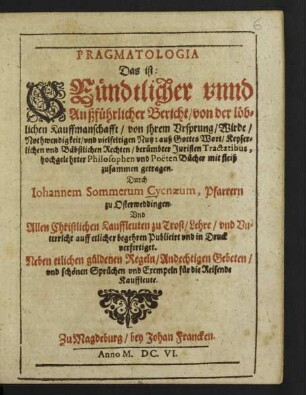 6
PRAGMATOLOGIA
Das ist:
Gründtlicher vnnd
Außführlicher Bericht / von der löb-
lichen Kauffmanschafft / von ihrem Vrsprung / Wirde /
Nothwendigkeit / vnd vielfeltigen Nutz: auß Gottes Wort / Keyser-
lichen vnd Bäbstlichen Rechten / berümbter Juristen Tractatibus,
hochgelehrter Philosophen vnd Poëten Bücher mit fleiß
zusammen getragen.
Durch
Iohannem Sommerum Cycnæum, Pfarrern
zu Osterweddingen.
Vnd
Allen Christlichen Kauffleuten zu Trost / Lehre / vnd Vn-
terricht auff etlicher begehren Publicirt vnd in Druck
verfertiget.
Neben etlichen güldenen Regeln / Andechtigen Gebeten /
vnd schönen Sprüchen vnd Exempeln für die Reisende
Kauffleute.
Zu Magdeburg / bey Johan Francken.
Anno M. DC. VI.